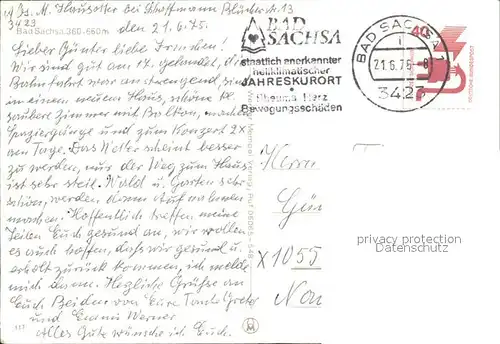 Bad Sachsa 360-660m
3423 den 21.6.75.
Lieber Günter liebe Freunden!
Wir sind gut am 17. gelandet, die
Bahnfahrt war anstrengend, sind
in einem neuen Haus, schöne
saubere Zimmer mit Balkon, machen
Spaziergänge und zum Konzert 2x
am Tage. Das Wetter scheint besser
zu werden, nur der Weg zum Haus
ist sehr steil. Wald u. Garten sehr
schön, werden dann Aufnahmen
machen. Hoffentlich treffen meine
Zeilen Euch gesund an, wir wollen
es auch hoffen, dass wir gesund u.
erholt zurück kommen, ich melde
mich dann. Herzliche Grüße an
Euch Beiden von Eure Tante Grete
und Werner
Alles Gute wünsche ich Euch.
BAD
SACHSA
staatlich anerkannter
heilklimatischer
JAHRESKURORT
Rheuma Herz
Bewegungsschäden
BAD SACHSA 1
21.6.75
3423
40
DEUTSCHE BUNDESPOST
Herrn
Gün
X 1055
Non
privacy protection
Datenschutz